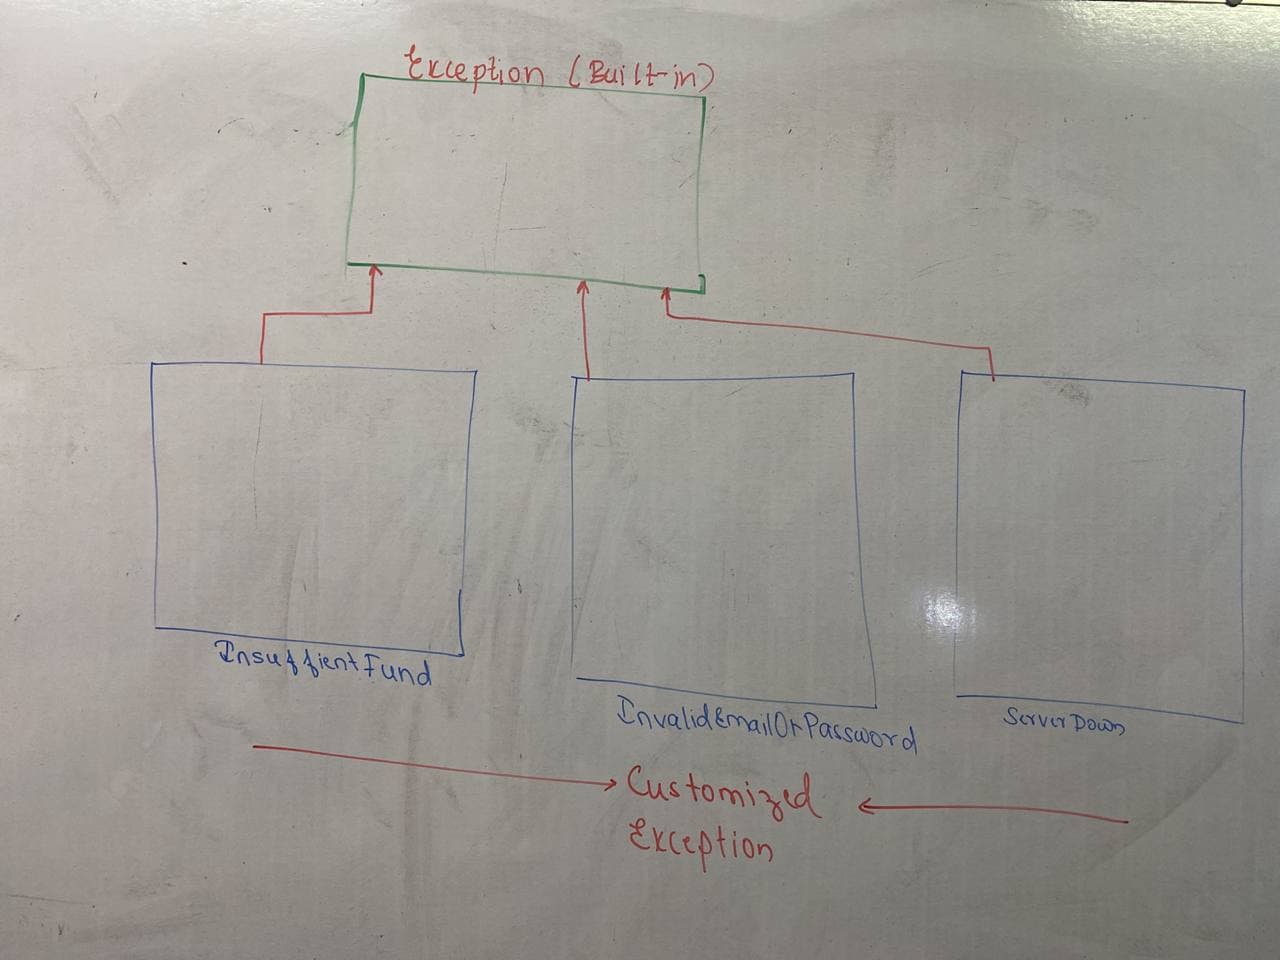 Exception (Built-in)
InsuffientFund
InvalidEmailOrPassword
ServerDown
Customized
Exception